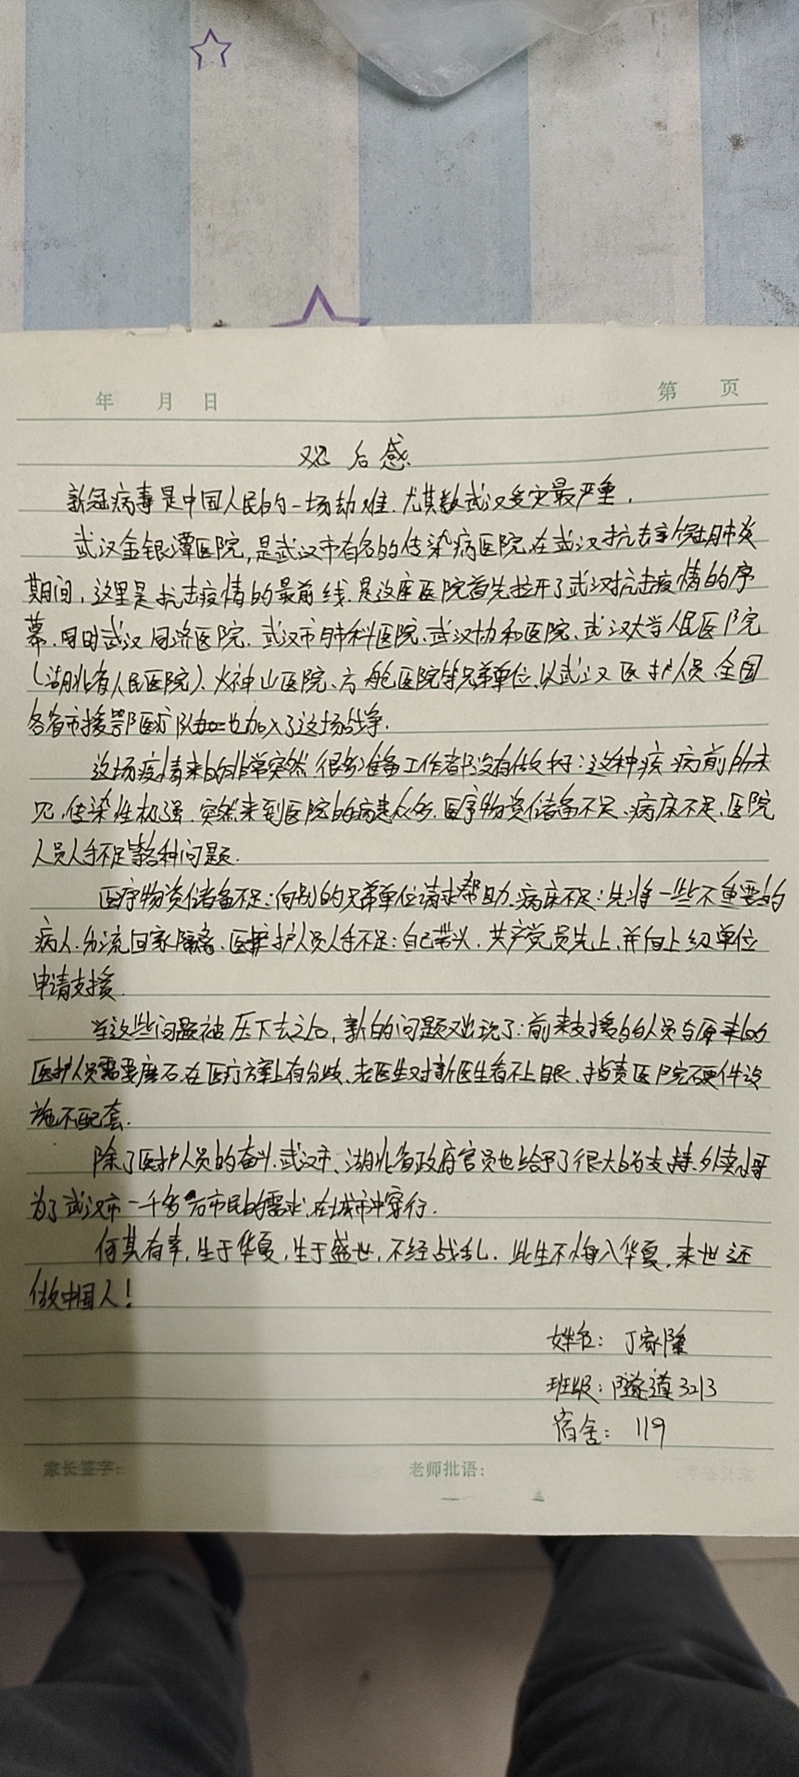 年 月 日 第 页
观后感
新冠病毒是中国人民的一场劫难.尤其数武汉受灾最严重.
武汉金银潭医院,是武汉市有名的传染病医院.在武汉抗击新冠肺炎
期间,这里是抗击疫情的最前线.是这座医院首先拉开了武汉抗击疫情的序
幕.同时武汉同济医院.武汉市肺科医院.武汉协和医院、武汉大学人民医院
(湖北省人民医院)、火神山医院、方舱医院等兄弟单位.以武汉医护人员、全国
各省市援鄂医疗队也加入了这场战争.
这场疫情来的非常突然.很多准备工作都没有做好:这种疾病前所未
见.传染性极强.突然来到医院的病患众多.医疗物资储备不足、病床不足、医院
人员人手不足等各种问题.
医疗物资储备不足:向别的兄弟单位请求帮助.病床不足:先将一些不重要的
病人.分流回家隔离.医护人员人手不足:自己带头.共产党员先上.并向上级单位
申请支援.
当这些问题被压下去之后,新的问题又出现了:前来支援的人员与原来的
医护人员需要磨合.在医疗方案上有分歧.老医生对新医生看不上眼.指责医院硬件设
施不配套.
除了医护人员的奋斗.武汉市、湖北省政府官员也给予了很大的支持.外卖小哥
为了武汉市一千多万市民的需求.在城市中穿行.
何其有幸,生于华夏,生于盛世,不经战乱.此生不悔入华夏,来世还
做中国人!
姓名:丁家隆
班级:隧道3213
宿舍:119
家长签字: 老师批语: